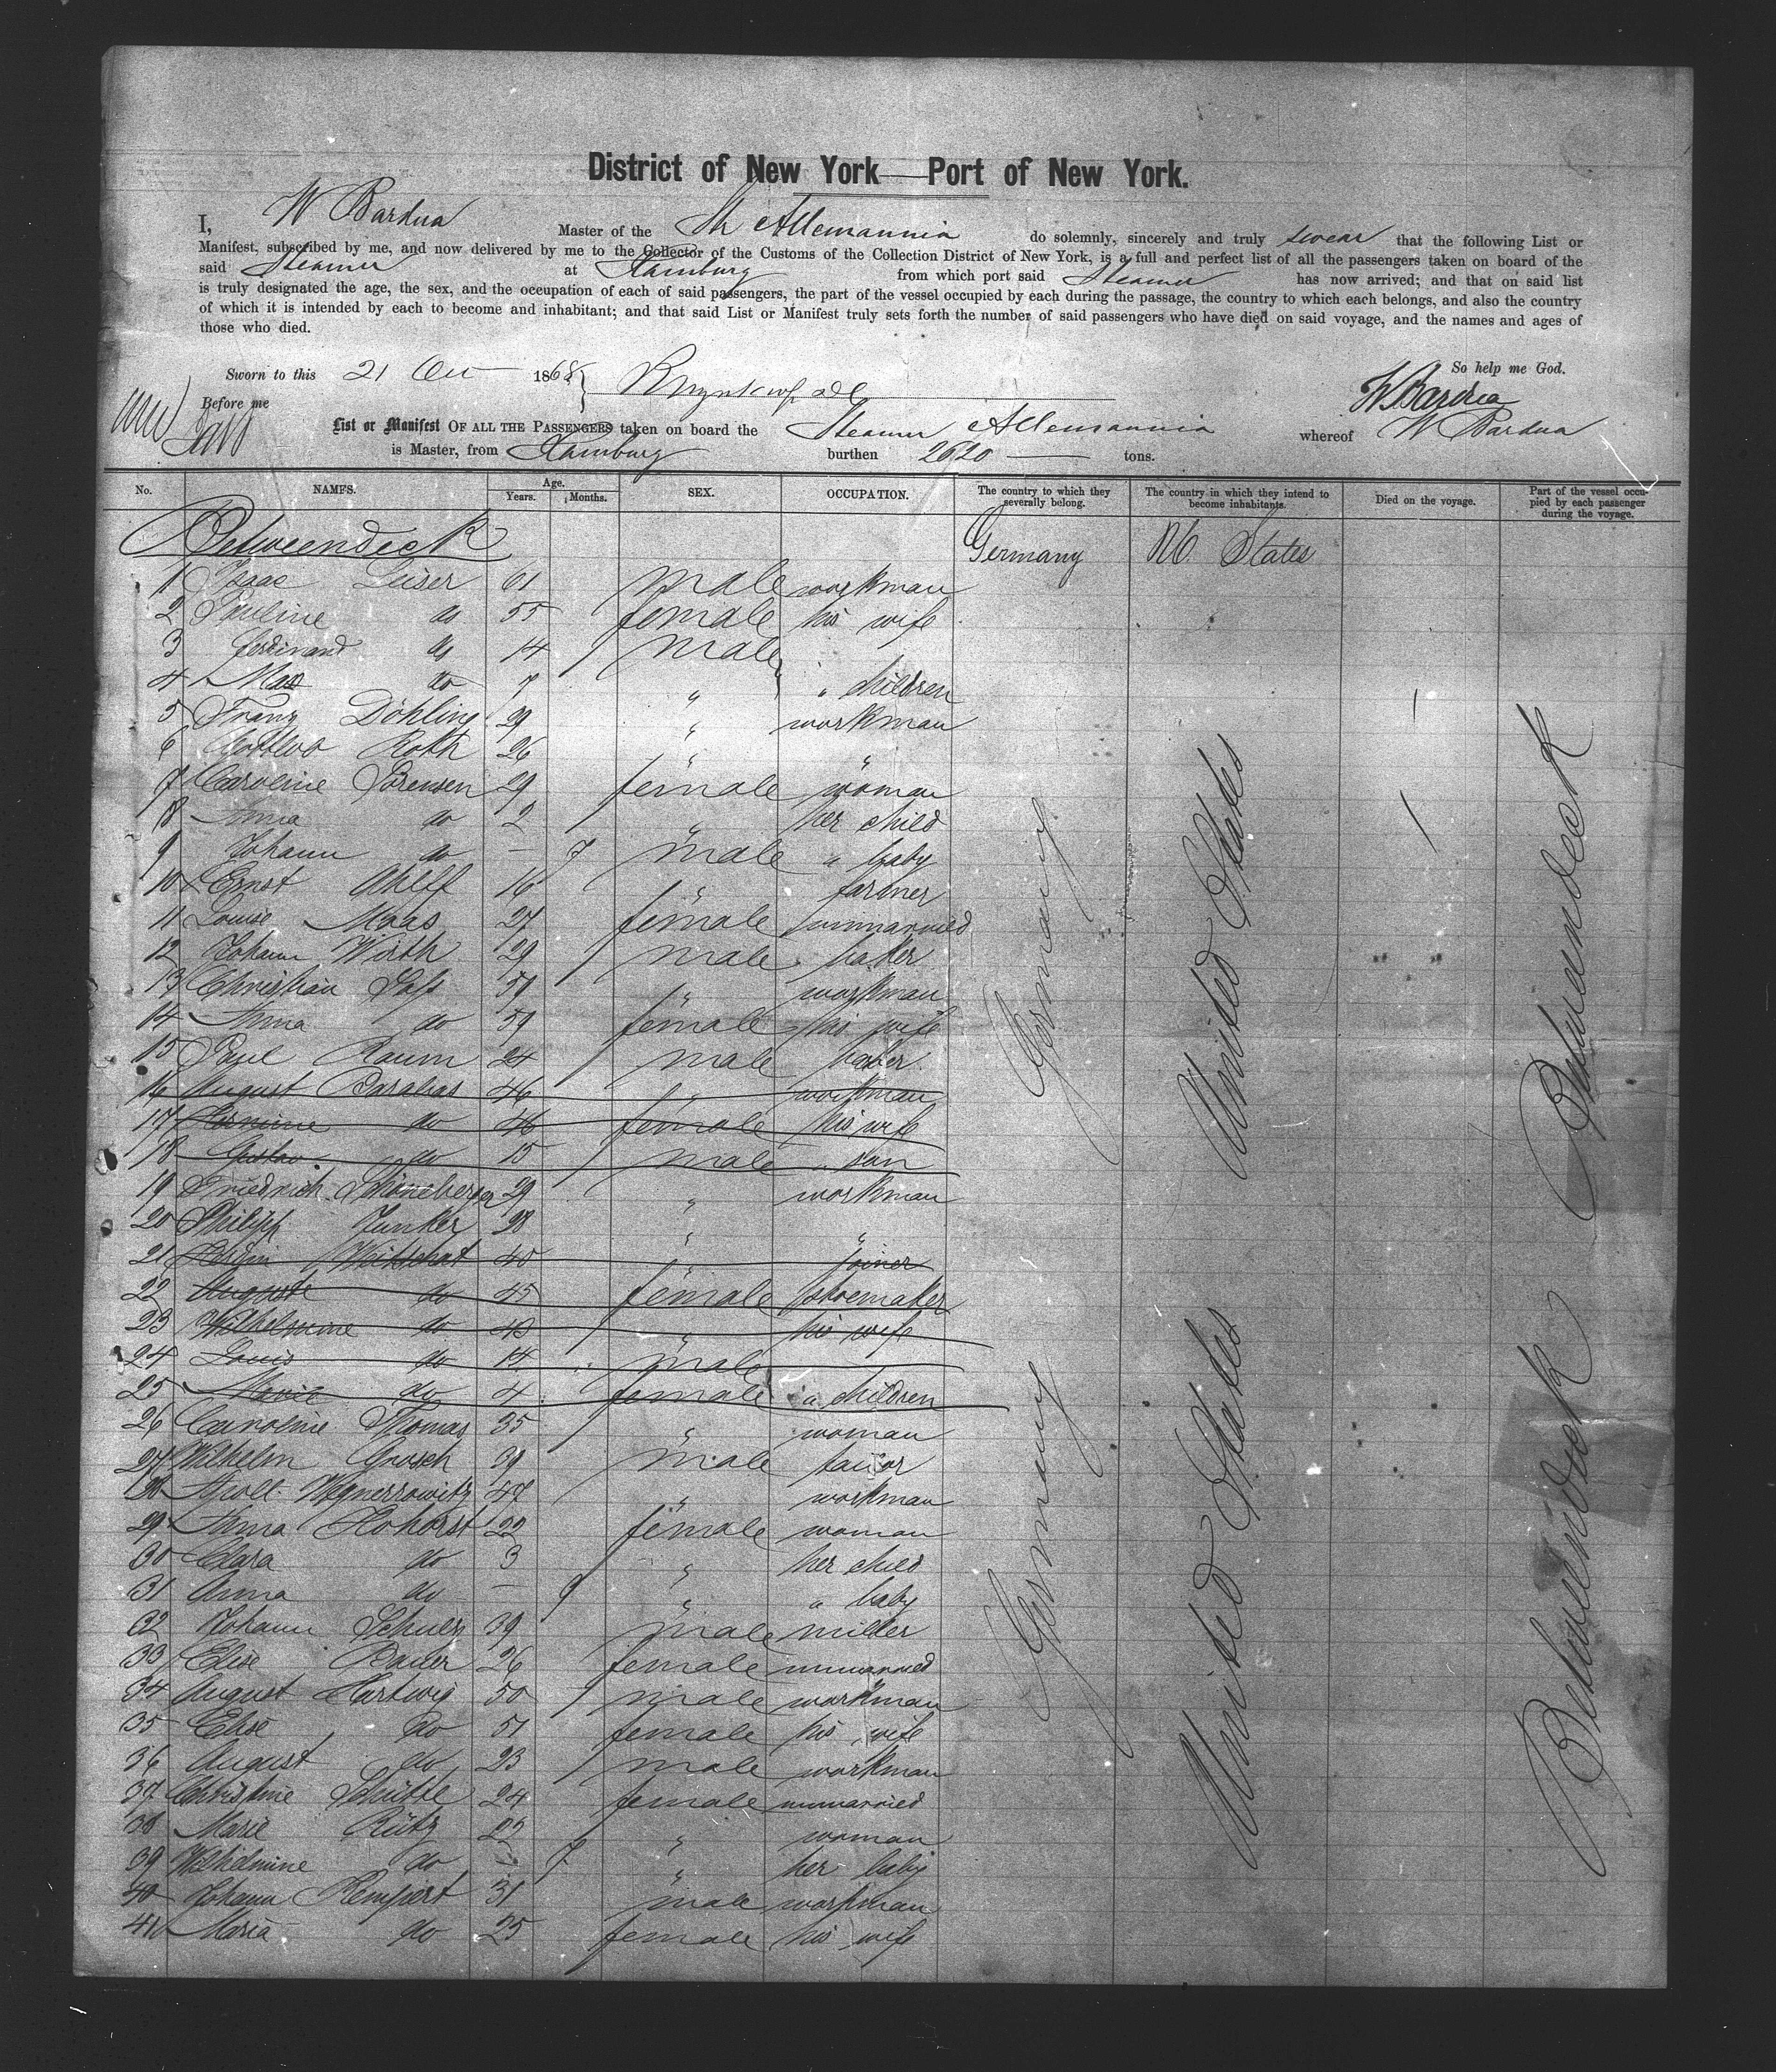 District of New York—Port of New York.
I, W Bardua Master of the Str Allemannia do solemnly, sincerely and truly swear that the following List or
Manifest, subscribed by me, and now delivered by me to the Collector of the Customs of the Collection District of New York, is a full and perfect list of all the passengers taken on board of the
said Steamer at Hamburg from which port said Steamer has now arrived; and that on said list
is truly designated the age, the sex, and the occupation of each of said passengers, the part of the vessel occupied by each during the passage, the country to which each belongs, and also the country
of which it is intended by each to become and inhabitant; and that said List or Manifest truly sets forth the number of said passengers who have died on said voyage, and the names and ages of
those who died.
So help me God.
Sworn to this 21 Oct 1868
W Bardua
Before me
List or Manifest OF ALL THE PASSENGERS taken on board the Steamer Allemannia whereof W Bardua
is Master, from Hamburg burthen 2620 tons.
No. NAMES. Age. Years. Months. SEX. OCCUPATION. The country to which they severally belong. The country in which they intend to become inhabitants. Died on the voyage. Part of the vessel occupied by each passenger during the voyage.
Betweendeck Germany States
1 Isaac Leiser 61 male workman
2 Pauline do 55 female his wife
3 Ferdinand do 14 male
4 Max do 7 " " children
5 Franz Döhling 29 " workman
6 Gottlob Roth 26 " "
7 Caroline Sörensen 29 female woman
8 Anna do 2 " her child
9 Johann do — 7 male " baby
10 Ernst Ahlff 16 " farmer
11 Louise Maas 27 female unmarried
12 Johann Wirth 29 male baker
13 Christian Sass 59 " workman
14 Anna do 59 female his wife
15 Paul Raum 24 male baker
16 August Barabas 46 " workman
17 do 46 female his wife
18 Gustav do 15 male " son
19 Friedrich Schöneberger 29 " workman
20 Philipp Junker 28 " "
21 Witschat 40 " joiner
22 Auguste do 45 female shoemaker
23 Wilhelmine do 40 " his wife
24 Louis do 14 male
25 Marie do 4 female " children
26 Caroline Thomas 35 " woman
27 Wilhelm Grosch 39 male tailor
28 Apoll. Wegnerrowitz 47 " workman
29 Anna Hohorst 22 female woman
30 Clara do 3 " her child
31 Anna do — 9 " " baby
32 Johann Schulz 39 male miller
33 Elise Bauer 26 female unmarried
34 August Hartwig 50 male workman
35 Elise do 51 female his wife
36 August do 23 male workman
37 Christine Schütte 24 female unmarried
38 Marie Rütz 22 " woman
39 Wilhelmine do — 7 " her baby
40 Johann Rempert 31 male workman
41 Maria do 25 female his wife
Germany United States Betweendeck
Germany United States Betweendeck